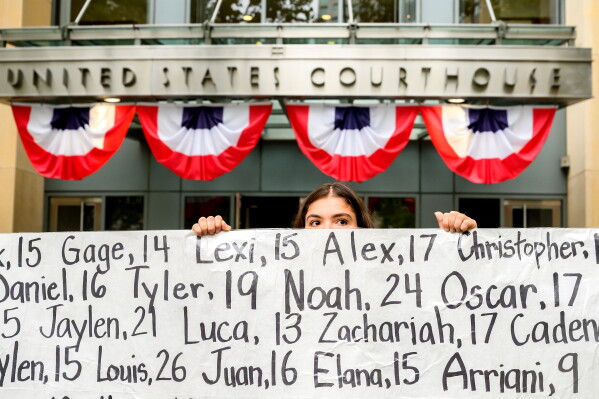 UNITED STATES COURTHOUSE
x, 15 Gage, 14 Lexi, 15 Alex, 17 Christopher, 1
Daniel, 16 Tyler, 19 Noah, 24 Oscar, 17
5 Jaylen, 21 Luca, 13 Zachariah, 17 Caden
ylen, 15 Louis, 26 Juan, 16 Elana, 15 Arriani, 9